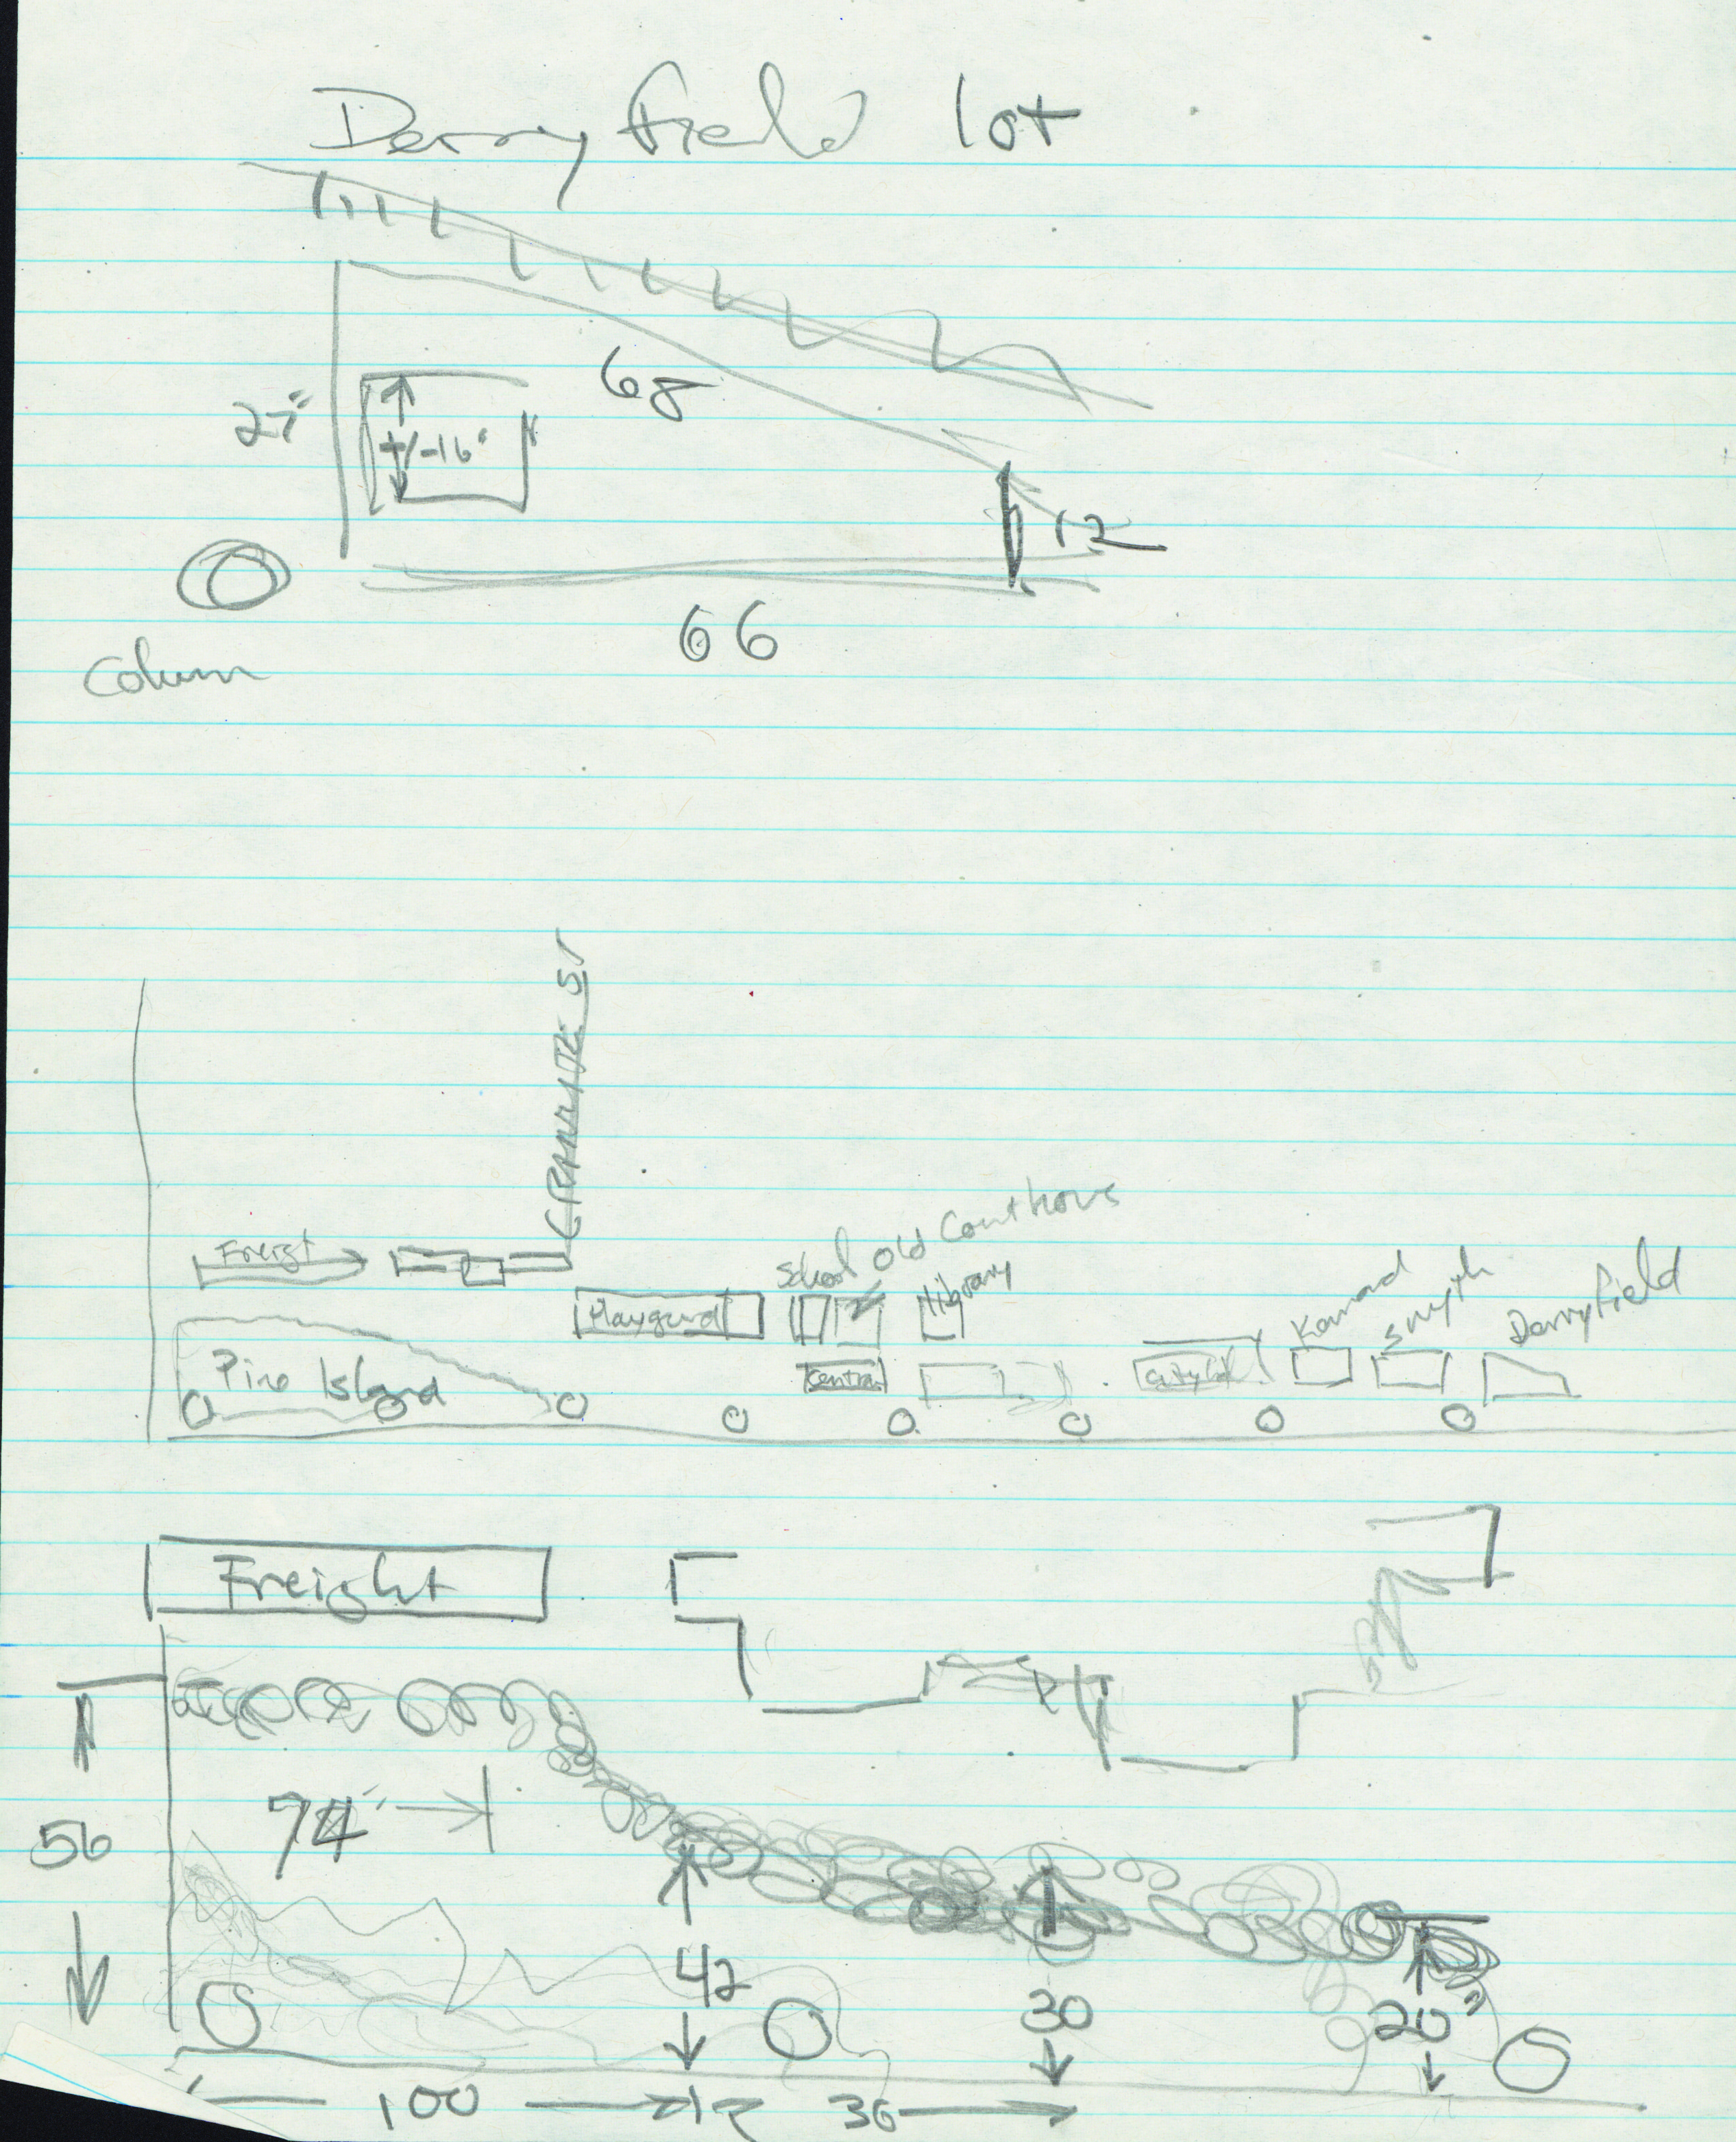 Derryfield lot
68
27"
+/-16"
12
66
Column
GRANITE ST
Freigt
School Old Courthous
Library
Playgurd
Central
Pine Island
Smyth
Derryfield
Freight
74"
56
42
30
20"
100
36